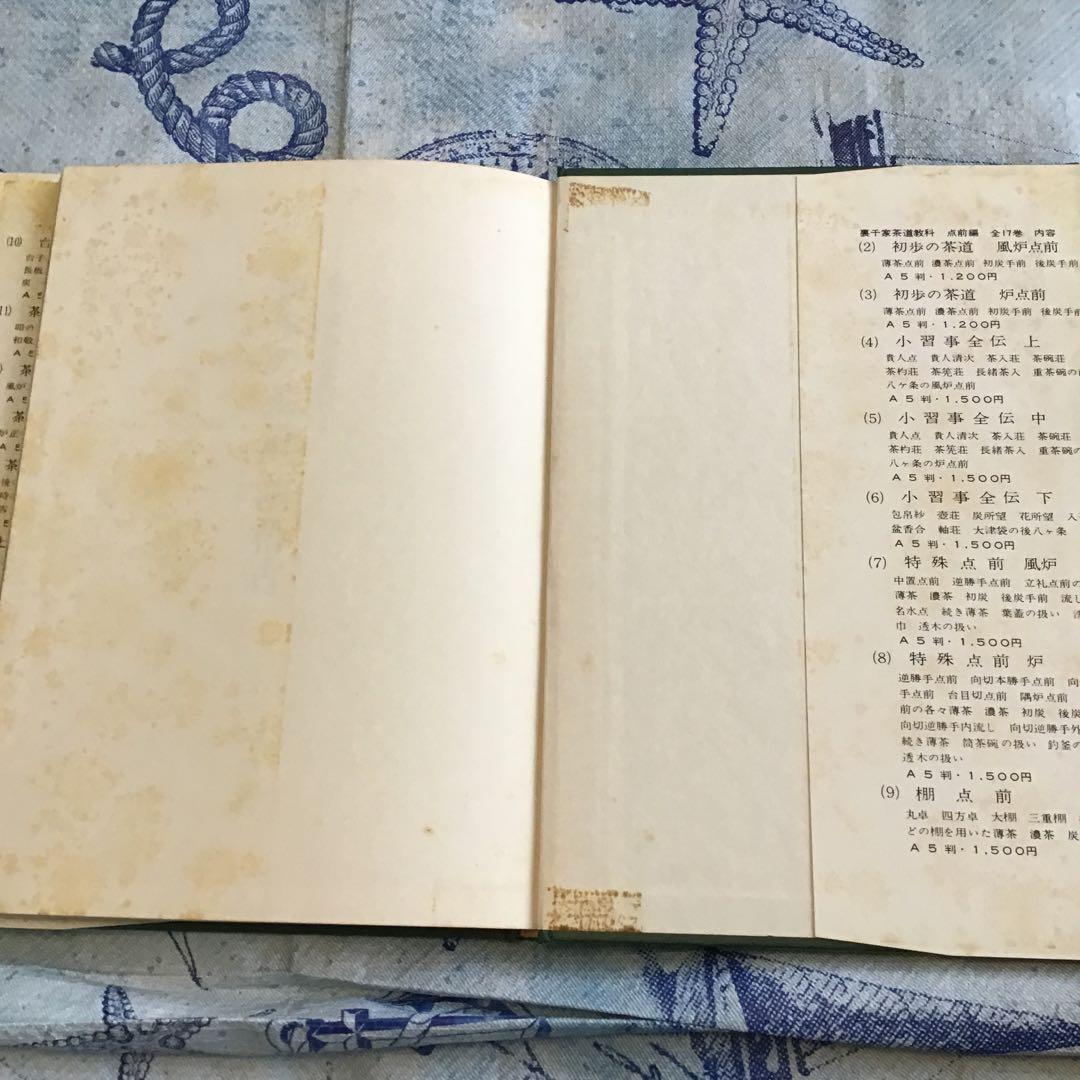 裏千家茶道教科 点前編 全17巻 内容
(2) 初歩の茶道 風炉点前
薄茶点前 濃茶点前 初炭手前 後炭手前
A5判・1,200円
(3) 初歩の茶道 炉点前
薄茶点前 濃茶点前 初炭手前 後炭手前
A5判・1,200円
(4) 小習事全伝 上
貴人点 貴人清次 茶入荘 茶碗荘
茶杓荘 茶筅荘 長緒茶入 重茶碗の
八ヶ条の風炉点前
A5判・1,500円
(5) 小習事全伝 中
貴人点 貴人清次 茶入荘 茶碗荘
茶杓荘 茶筅荘 長緒茶入 重茶碗の
八ヶ条の炉点前
A5判・1,500円
(6) 小習事全伝 下
包帛紗 壺荘 炭所望 花所望 入
盆香合 軸荘 大津袋の後八ヶ条
A5判・1,500円
(7) 特殊点前 風炉
中置点前 逆勝手点前 立礼点前の
薄茶 濃茶 初炭 後炭手前 流し
名水点 続き薄茶 葉蓋の扱い
巾 透木の扱い
A5判・1,500円
(8) 特殊点前 炉
逆勝手点前 向切本勝手点前 向
手点前 台目切点前 隅炉点前
前の各々薄茶 濃茶 初炭 後炭
向切逆勝手内流し 向切逆勝手外
続き薄茶 筒茶碗の扱い 釣釜の
透木の扱い
A5判・1,500円
(9) 棚点前
丸卓 四方卓 大棚 三重棚
どの棚を用いた薄茶 濃茶 炭
A5判・1,500円
(10) 台
台子
長板
炭
A5
11) 茶
唱の
和敬
A5
茶
風炉
A5
茶
炉正
A5
茶
後
時
客
A5
上